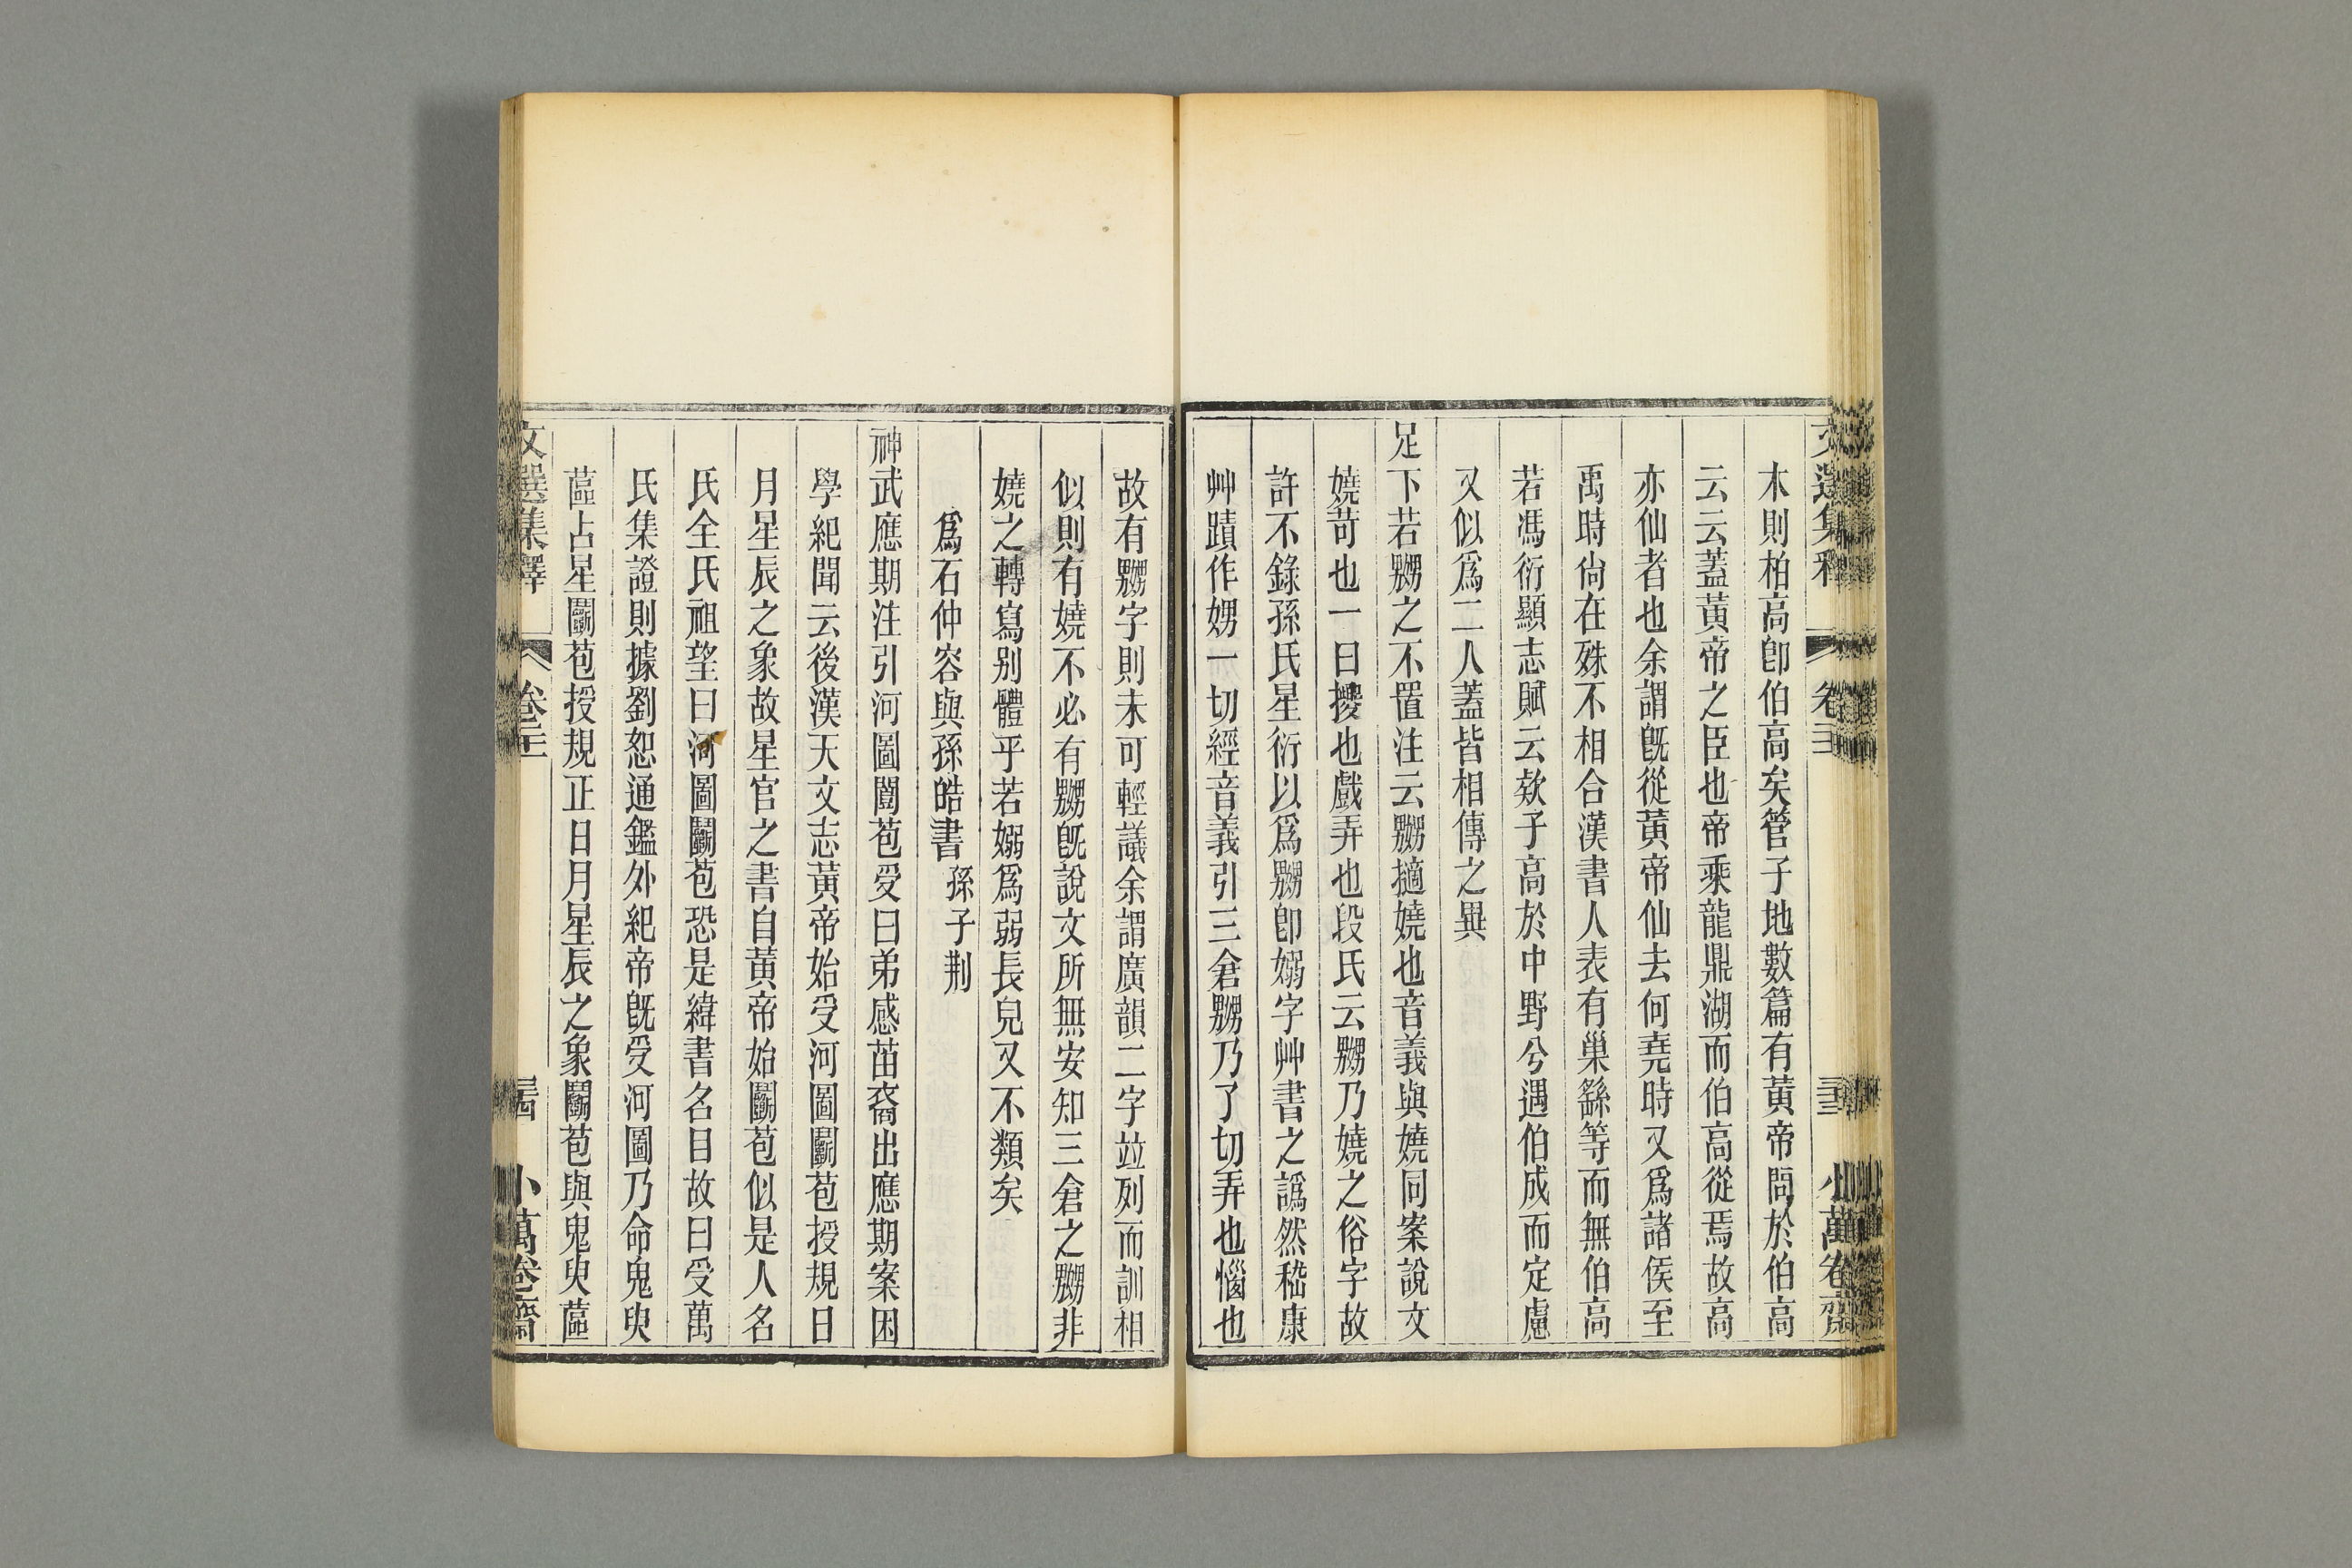 木則柏高卽伯高矣管子地數篇有黃帝問於伯高
云云蓋黃帝之臣也帝乘龍鼎湖而伯高從焉故高
亦仙者也余謂旣從黃帝仙去何堯時又爲諸侯至
禹時尙在殊不相合漢書人表有巢繇等而無伯高
若馮衍顯志賦云款子高於中野兮遇伯成而定慮
又似爲二人蓋皆相傳之異
足下若嬲之不置注云嬲擿嬈也音義與嬈同案說文
嬈苛也一曰擾也戲弄也段氏云嬲乃嬈之俗字故
許不錄孫氏星衍以爲嬲卽嫋字艸書之譌然嵇康
艸蹟作娚一切經音義引三倉嬲乃了切弄也惱也
故有嬲字則未可輕議余謂廣韻二字竝列而訓相
似則有嬈不必有嬲旣說文所無安知三倉之嬲非
嬈之轉寫别體乎若嫋爲弱長皃又不類矣
爲石仲容與孫皓書 孫子荆
神武應期注引河圖闓苞受曰弟感苗裔出應期案困
學紀聞云後漢天文志黃帝始受河圖鬭苞授規日
月星辰之象故星官之書自黃帝始鬭苞似是人名
氏全氏祖望曰河圖鬭苞恐是緯書名目故曰受萬
氏集證則據劉恕通鑑外紀帝旣受河圖乃命鬼臾
蓲占星鬭苞授規正日月星辰之象鬭苞與鬼臾蓲
文選集釋
卷二十二
小萬卷齋